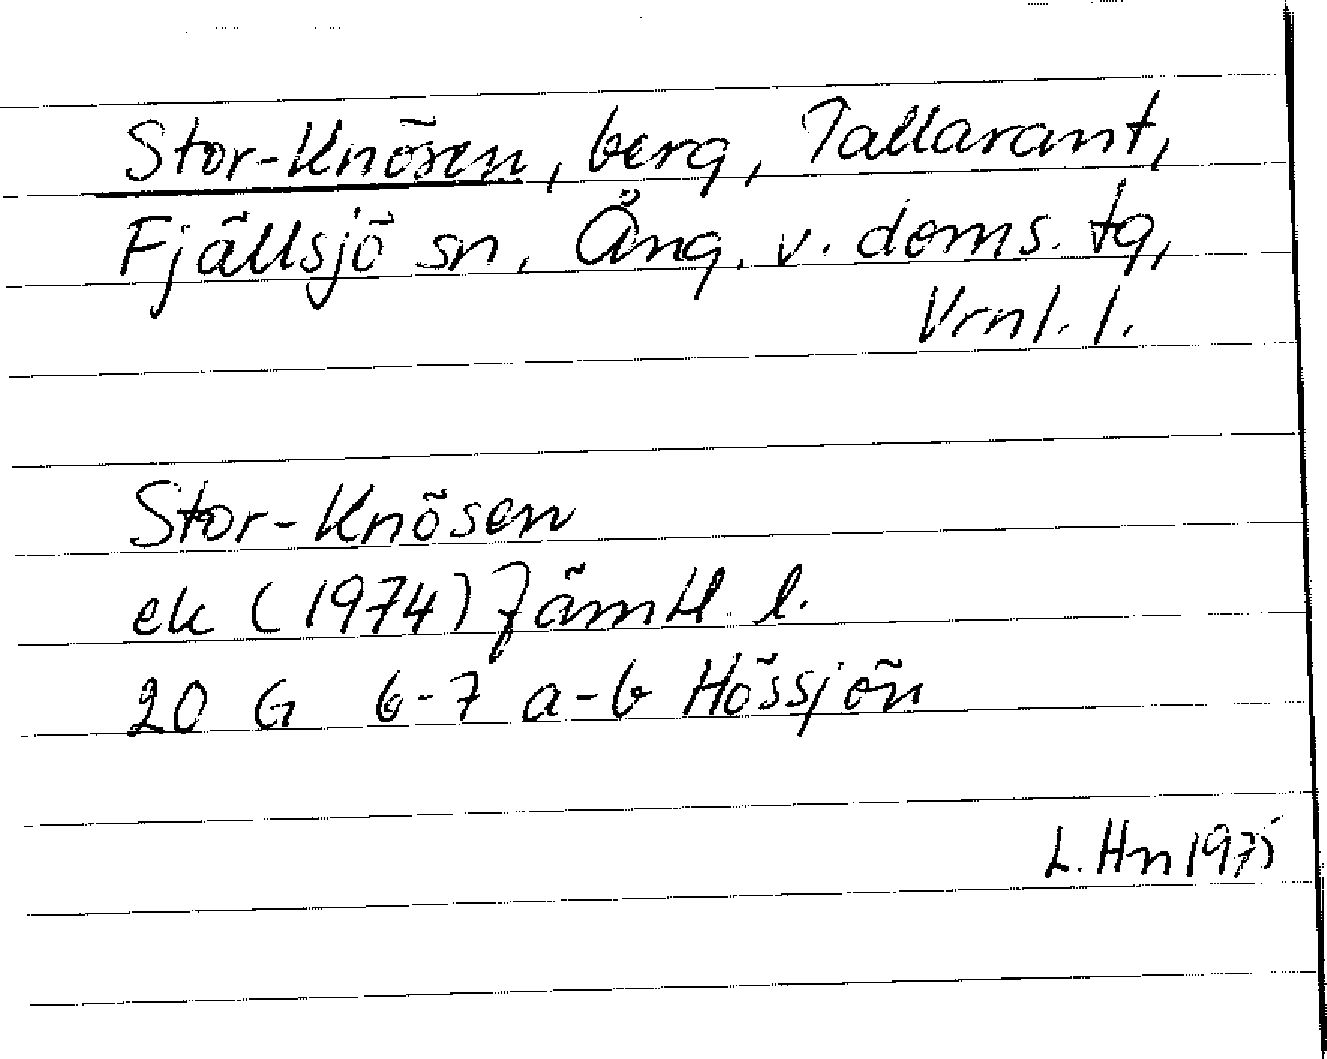 Stor-Knösen, berg, Tallarant,
Fjällsjö sn, Ång. v. doms. tg,
Vrnl. l.
Stor-Knösen
ek (1974) Jämtl l.
20 G 6-7 a-b Hössjön
L. Hn 1975